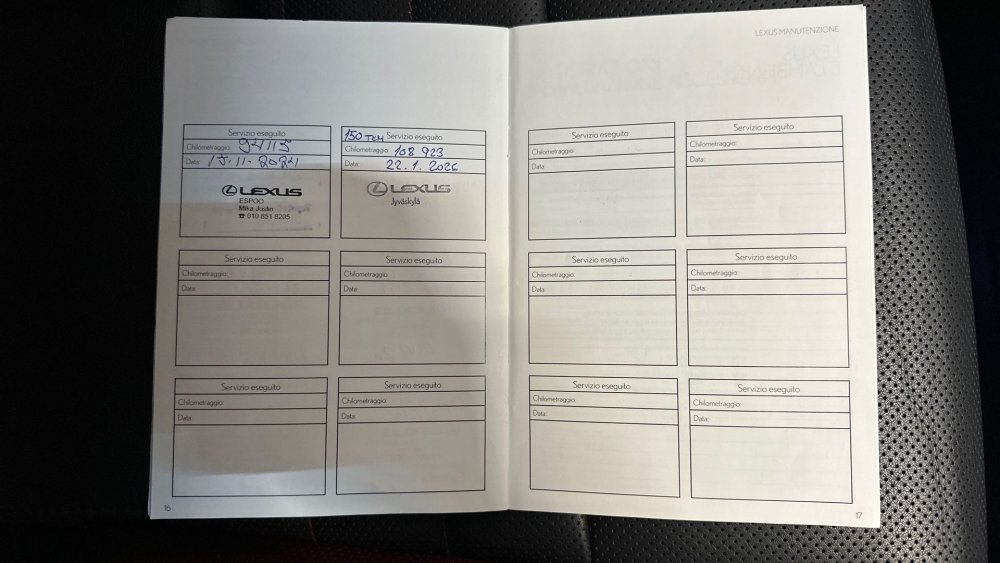 LEXUS MANUTENZIONE
Servizio eseguito
Chilometraggio: 94115
Data: 15.11.2024
LEXUS
ESPOO
Mika Justin
☎ 010 851 8205
150 TKM Servizio eseguito
Chilometraggio: 108 923
Data: 22.1.2026
LEXUS
Jyväskylä
Servizio eseguito
Chilometraggio:
Data:
Servizio eseguito
Chilometraggio:
Data:
Servizio eseguito
Chilometraggio:
Data:
Servizio eseguito
Chilometraggio:
Data:
Servizio eseguito
Chilometraggio:
Data:
Servizio eseguito
Chilometraggio:
Data:
Servizio eseguito
Chilometraggio:
Data:
Servizio eseguito
Chilometraggio:
Data:
Servizio eseguito
Chilometraggio:
Data:
Servizio eseguito
Chilometraggio:
Data:
16
17